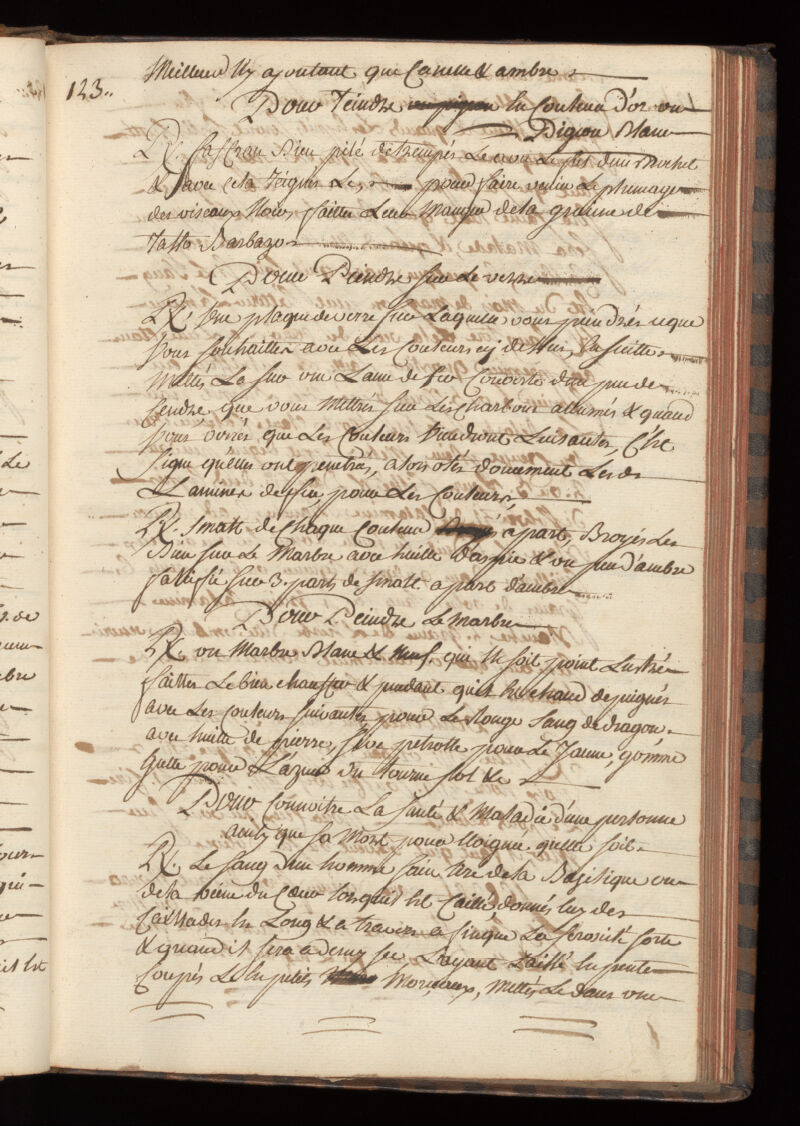 123..
Meilleur Ny ajoutant que Canelle & ambre
Pour Teindre en Couleur d'or un
Pigeon Blanc
Rx. Saffran Bien pilé detrempés Le avec
& avec cela teignes Les pour faire venir Le plumage
des oiseaux Noir faittes Leur Manger de la graine de
Tasso Barbazo
Pour Peindre sur Le verre
Rx. Une plaque de verre sur Laquelle vous peindrés ce que
vous souhaittes avec Les Couleurs cy dessus, Ensuitte
Mettés La sur une Lame de fer Couverte d'un peu de
Cendre que vous Mettrés sur Les Charbons allumés & quand
vous verrés que Les Couleurs viendront Luisantes, C'est
signe qu'elles ont penetrés, alors otés doucement Les de
Laminer de feu, pour Les Couleurs,
Rx. Smalt de Chaque Couleur apart, Broyés Les
Bien sur Le Marbre avec huille d'aspic & un peu d'ambre
sur 3. parts de smalt a part d'ambre
Pour Peindre Le marbre
Rx. un Marbre Blanc & Neuf, qui Ne soit point Lustré
faittes Le bien chauffer & pendant qu'il Est chaud depeignés
avec Les Couleurs suivantes pour Le Rouge sang de dragon,
avec huille de pierre, sive petrolle pour Le Jaune, gomme
Gutte pour L'azur Du tournesol &c
Pour Connoitre La santé & Maladie d'une personne
ainsy que sa Mort pour Eloignée qu'elle soit
Rx. Le sang d'un homme sain tiré de la Basilique ou
de la veine du Coeur lorsqu'il Est Caillé donnés luy des
taillades En Long & a travers a finque La serosité sorte
& quand il sera a demy sec L'ayant Taillé En sente
Coupés Le En petits Morceaux, Mettés Le dans une